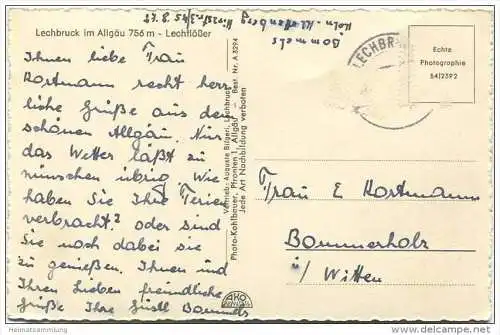 Lechbruck im Allgäu 756 m - Lechflößer
Bommels
Köln-Klettenberg
Ihnen liebe Frau
Kortmann recht herz-
liche Grüße aus dem
schönen Allgäu. Nur
das Wetter läßt zu
wünschen übrig. Wie
haben Sie Ihre Ferien
verbracht? oder sind
Sie noch dabei sie
zu genießen. Ihnen und
Ihren Lieben freundliche
Grüße Ihre
Vertrieb: Auguste Bilgeri, Lechbruck
Photo-Kohlbauer, Pfronten i. Allgäu - Best. Nr. A 5294
Jede Art Nachbildung verboten
AKO
LECHBR
Echte
Photographie
54/2392
Frau E Kortmann
Bommerholz
i/ Witten
Heimatsammlung